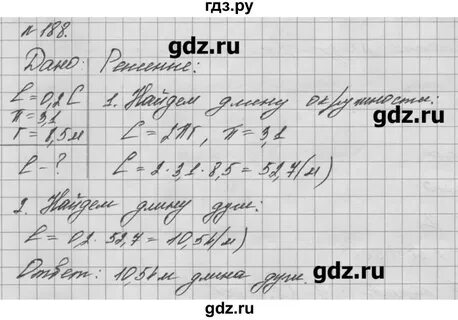 гдз.ру
gdz.ru
№ 188.
Дано: Решение:
ℓ = 0,2 C 1. Найдем длину окружности:
π = 3,1
r = 8,5 м C = 2πr, π = 3,1
ℓ - ? C = 2 · 3,1 · 8,5 = 52,7 (м)
2. Найдем длину дуги:
ℓ = 0,2 · 52,7 = 10,54 (м)
Ответ: 10,54 м длина дуги.
gdz.ru
gdz.ru
gdz.ru